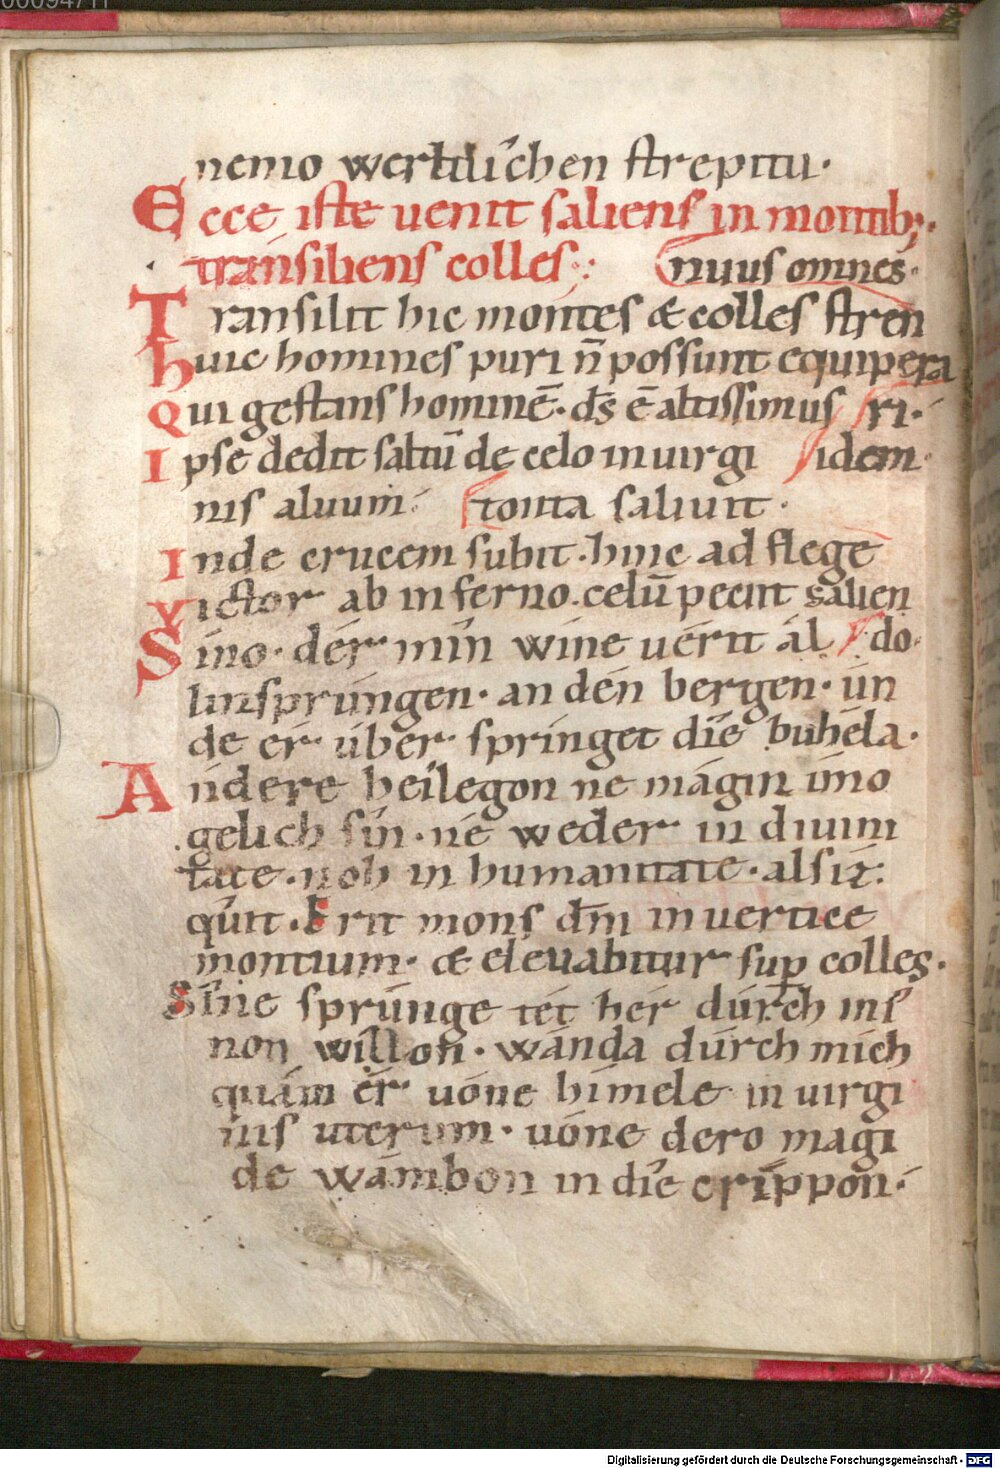 nemo werltlichen strepitu·
Ecce iste uenit saliens in montib;·
transiliens colles: nuus omnes·
Transilit hic montes & colles stren
huic homines puri n̄ possunt equipera
Qui gestans hominē· ds̄ ē altissimus ri·
Ipse dedit saltū de celo in uirgi idem·
nis aluum: tonta saliuit·
Inde crucem subit· hinc ad flege
Victor ab inferno· celū petit salien
Sino· dér mín wine uérit ál do·
linsprúngen· an dén bergen· ún
de ér úber springet díe buhéla·
Andere heilegon ne mágin imo
gelich sín· ne weder in diuini
tate· noh in humanitate· alsiz:
quit· Erit mons dm̄ in uertice
montium· & eleuabitur sup colles·
Síne sprúnge tét hér dúrch míſ
non willon· wánda dúrch mich
quám ér uóne hímele in uirgi
nis uterum· uóne dero magi
de wámbon in díe crippon·
Digitalisierung gefördert durch die Deutsche Forschungsgemeinschaft - DFG